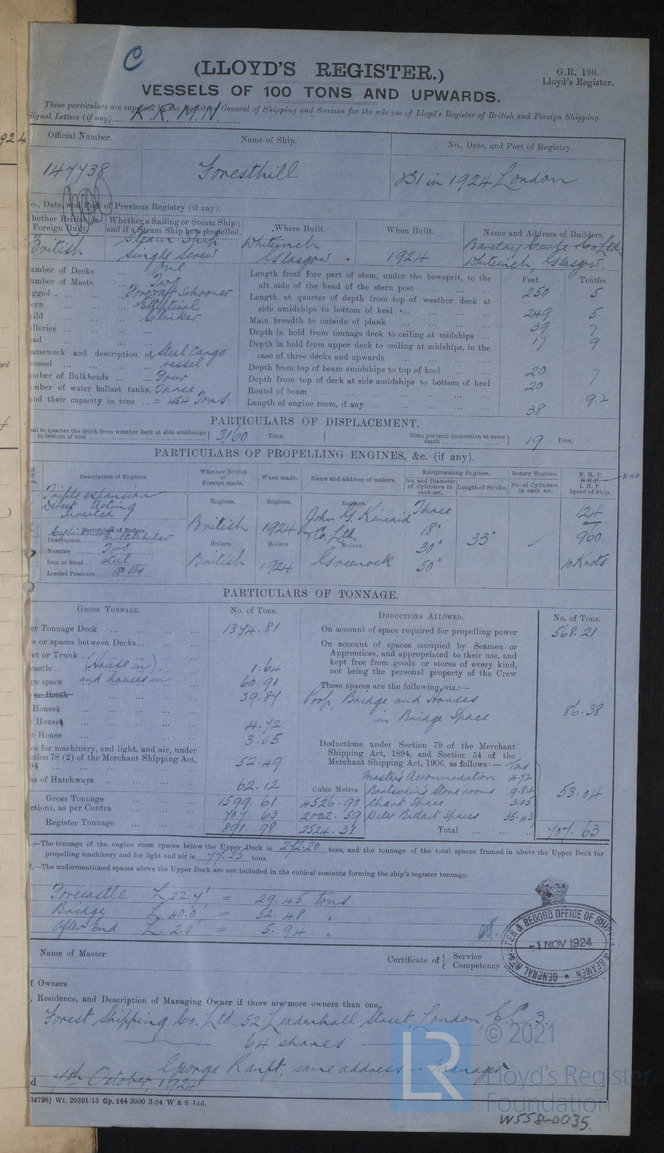 C
(LLOYD'S REGISTER.)
G.R. 180.
Lloyd's Register.
VESSELS OF 100 TONS AND UPWARDS.
These particulars are supplied by the Registrar General of Shipping and Seamen for the sole use of Lloyd's Register of British and Foreign Shipping.
Signal Letters (if any) K.R.M.N.
924
Official Number. Name of Ship. No., Date, and Port of Registry.
147738 Foresthill 231 in 1924 London
o., Date, and Port of Previous Registry (if any).
hether British or Foreign Built. Whether a Sailing or Steam Ship; and if a Steam Ship how propelled. Where Built. When Built. Name and Address of Builders.
British Steam Ship Single Screw Whiteinch Glasgow 1924 Barclay Curle & Co. Ltd. Whiteinch Glasgow.
umber of Decks One
umber of Masts Two
gged Fore & aft Schooner
ern Elliptical
uild Clinker
alleries
ead
amework and description of vessel Steel Cargo Vessel
umber of Bulkheads Four
umber of water ballast tanks, Three
and their capacity in tons = 454 Tons
Feet. Tenths
Length from fore part of stem, under the bowsprit, to the aft side of the head of the stern post 250 5
Length at quarter of depth from top of weather deck at side amidships to bottom of keel 249 5
Main breadth to outside of plank 39 7
Depth in hold from tonnage deck to ceiling at midships 17 9
Depth in hold from upper deck to ceiling at midships, in the case of three decks and upwards
Depth from top of beam amidships to top of keel 20 7
Depth from top of deck at side amidships to bottom of keel 20
Round of beam 9.2
Length of engine room, if any 38
PARTICULARS OF DISPLACEMENT.
al to quarter the depth from weather deck at side amidships to bottom of keel 3,160 Tons.
Ditto per inch immersion at same depth 19 Tons.
PARTICULARS OF PROPELLING ENGINES, &c. (if any).
Description of Engines. Whether British or Foreign made. When made. Name and address of makers. Reciprocating Engines. Rotary Engines. N.H.P.
No. and Diameter of Cylinders in each set. Length of Stroke. No. of Cylinders in each set. B.H.P. I.H.P. Speed of Ship.
Engines. Engines. Engines.
Triple expansion
Direct Acting
Inverted
British 1924 John G. Kincaid & Co. Ltd. Three 18" 30" 50" 33" 124
960
10 Knots
Particulars of Boilers.
Description Multitubular
Number Two
Iron or Steel Steel
Loaded Pressure 180 lbs
Boilers Boilers Boilers.
British 1924 Greenock
PARTICULARS OF TONNAGE.
GROSS TONNAGE. No. of Tons. DEDUCTIONS ALLOWED. No. of Tons.
er Tonnage Deck 1374.81
e or spaces between Decks
et or Trunk
castle (House in) 1.64
ge space and houses in 60.91
39.84
Houses
House 4.72
House 3.05
es for machinery, and light, and air, under
ction 78 (2) of the Merchant Shipping Act,
94 52.49
ss of Hatchways 62.12
Gross Tonnage 1599.61
ctions, as per Contra 707.63
Register Tonnage 891.98
Cubic Metres
4526.90
2002.59
2524.31
On account of space required for propelling power 568.21
On account of spaces occupied by Seamen or Apprentices, and appropriated to their use, and kept free from goods or stores of every kind, not being the personal property of the Crew
These spaces are the following, viz.:—
Poop, Bridge and Houses
in Bridge Space 86.38
Deductions under Section 79 of the Merchant Shipping Act, 1894, and Section 54 of the Merchant Shipping Act, 1906, as follows:— Tons
Master's Accommodation 4.72
Boatswain's Storerooms 9.84
Chart Space 3.05
Water Ballast Spaces 35.43
53.04
Total 707.63
.—The tonnage of the engine room spaces below the Upper Deck is 272.20 tons, and the tonnage of the total spaces framed in above the Upper Deck for
propelling machinery and for light and air is 77.25 tons
.—The undermentioned spaces above the Upper Deck are not included in the cubical contents forming the ship's register tonnage.
Forecastle L 22.4', = 29.45 tons
Bridge L 40.0, = 52.48 "
After End L 2.0' = 5.94 "
REGISTER & RECORD OFFICE OF SHIPPING & SEAMEN
-1 NOV 1924
GENERAL
Name of Master
Certificate of { Service
Competency
f Owners
, Residence, and Description of Managing Owner if there are more owners than one.
Forest Shipping Co. Ltd., 52 Leadenhall Street, London, E.C. 3.
64 shares
George Ranft, same address - Manager
d 4th October 1924
34798) Wt. 29391/15 Gp. 144 2000 3-24 W & S Ltd.
© 2021
LR
Lloyd's Register
Foundation
W558-0035